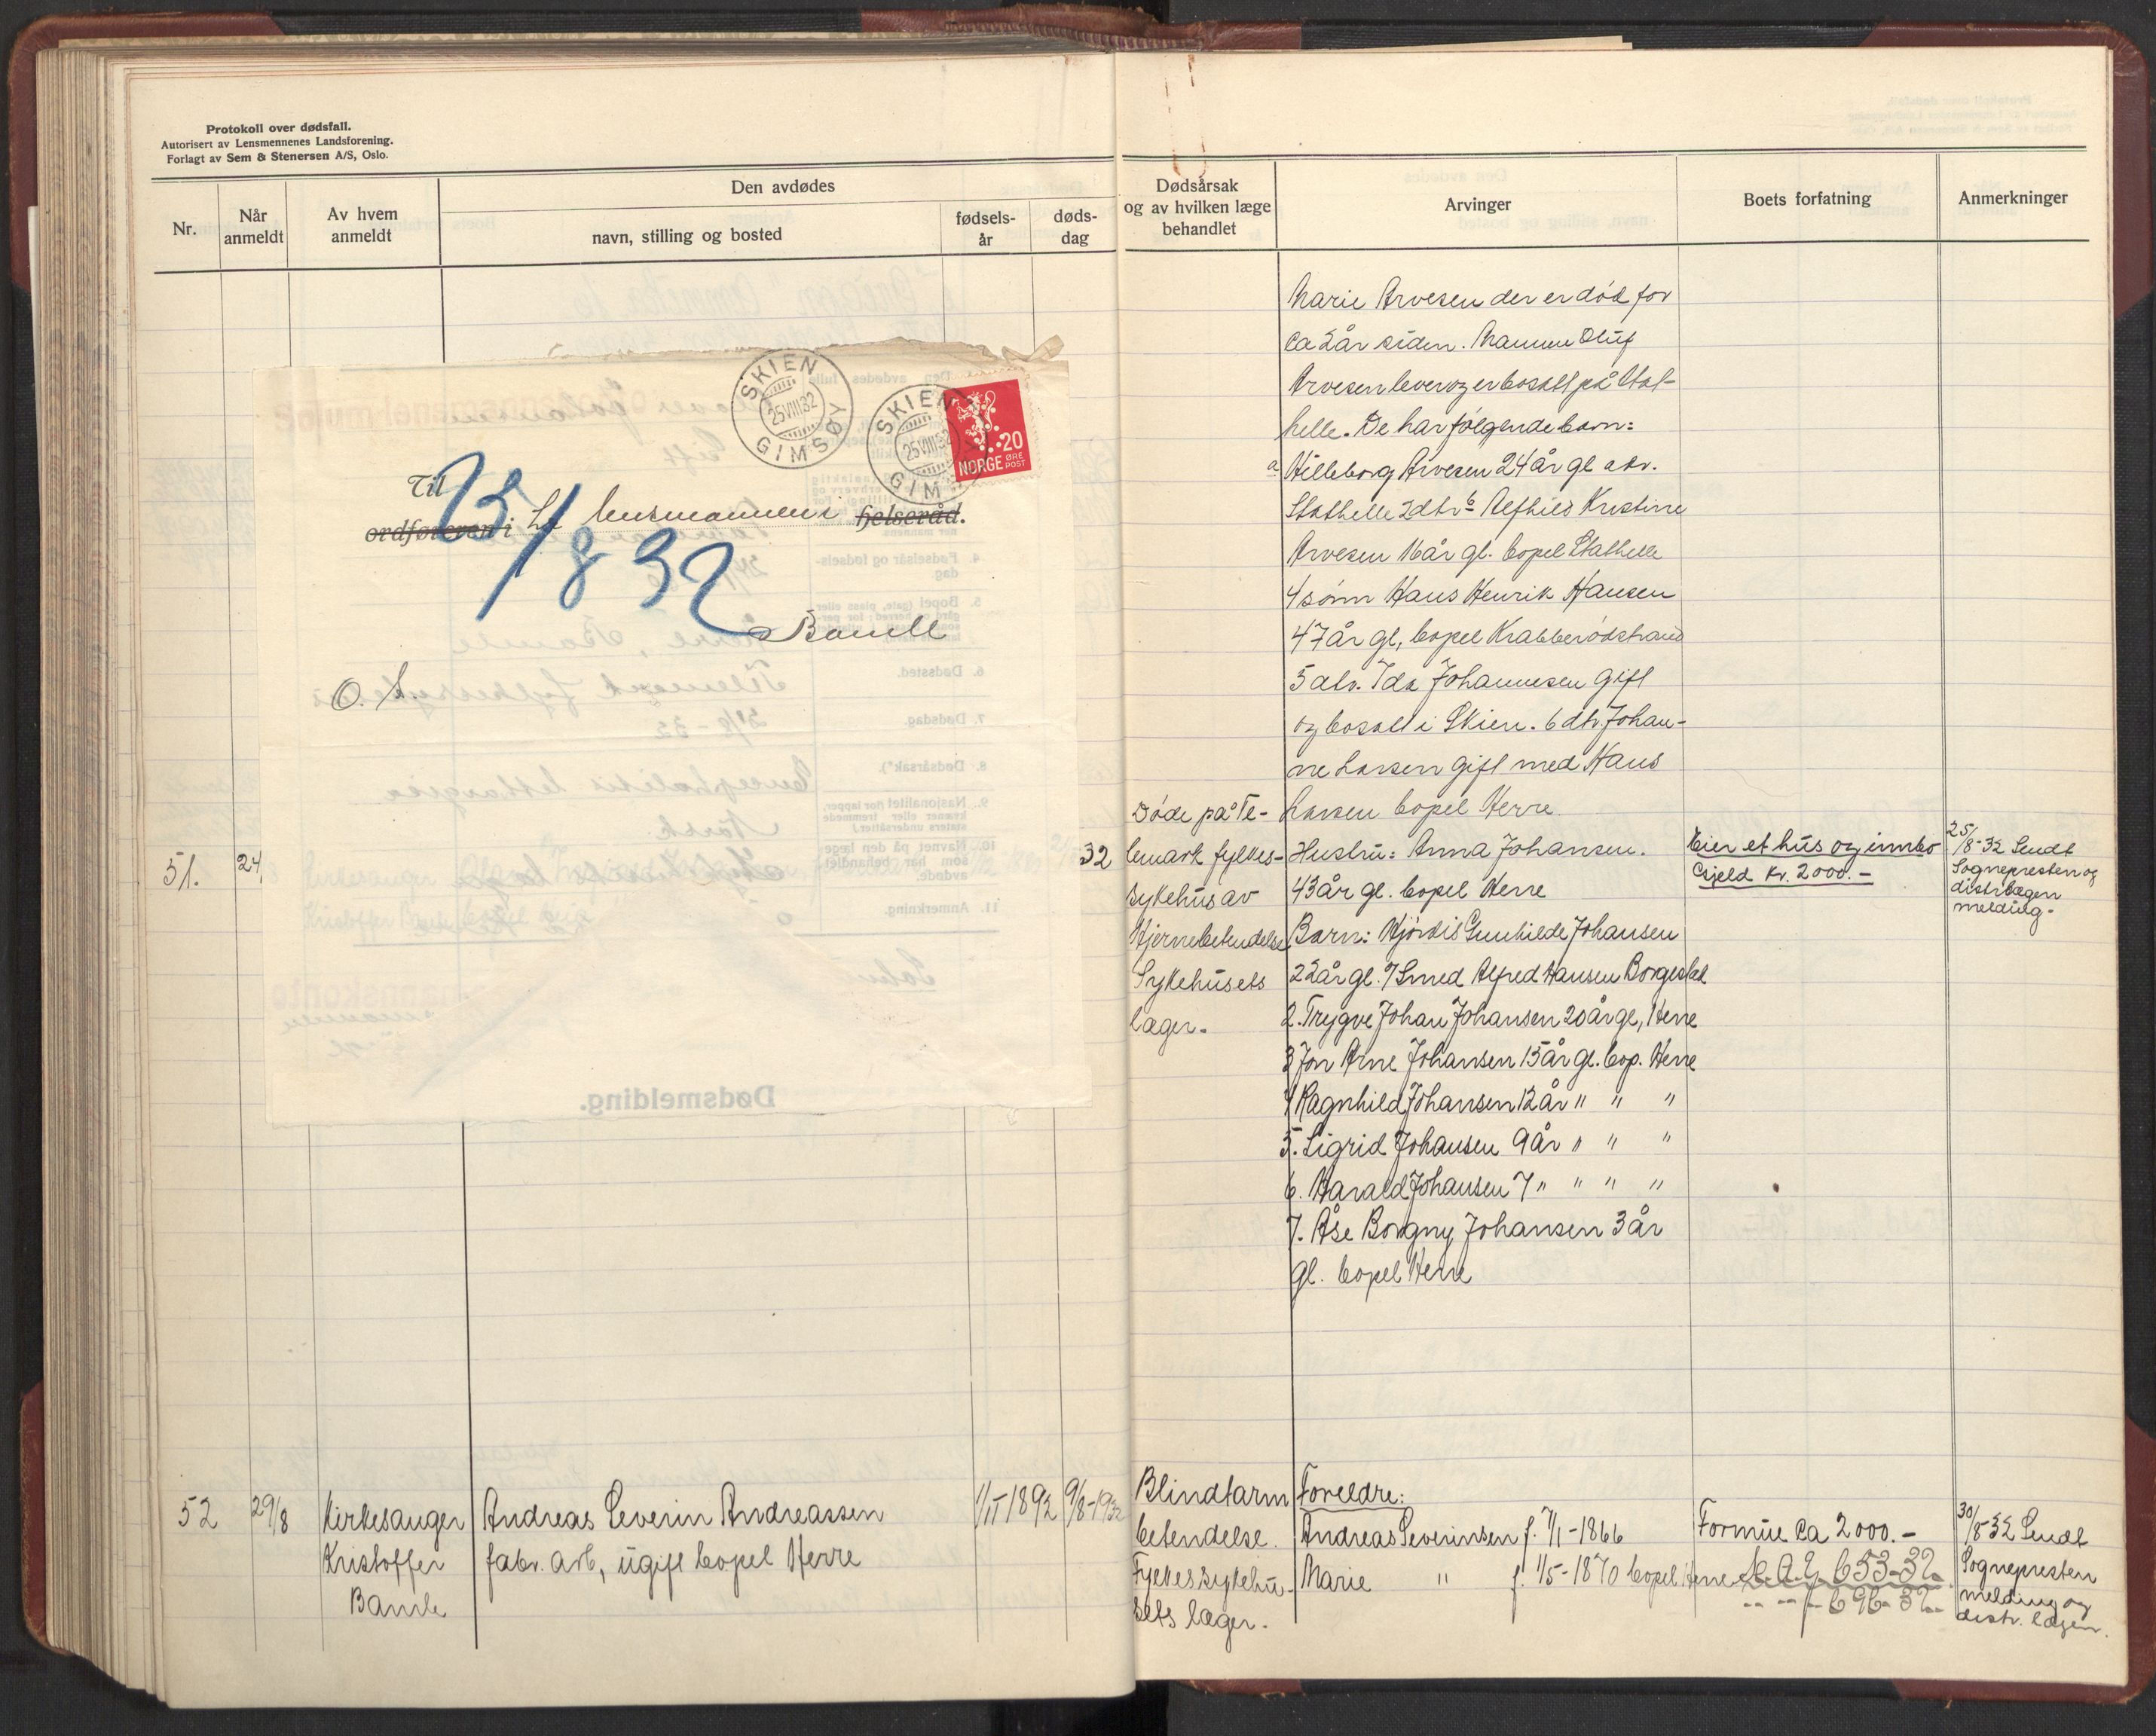 Protokoll over dødsfall.
Autorisert av Lensmennenes Landsforening.
Forlagt av Sem & Stenersen A/S, Oslo.
Nr.
Når anmeldt
Av hvem anmeldt
Den avdødes
navn, stilling og bosted
fødsels-år
døds-dag
Dødsårsak
og av hvilken læge
behandlet
Arvinger
Boets forfatning
Anmerkninger
SKIEN
25 VIII 32
GIMSØY
SKIEN
25 VIII 32
GIM
20
NORGE ØRE POST
Til
ordføreren i lensmannen i helseråd.
25/8 32
Bamle
Dødsmelding.
Marie Arvesen der er død for
ca 2 år siden. Mannen Oluf
Arvesen lever og er bosatt på Stat-
helle. De har følgende barn:
a Hilleborg Arvesen 24 år gl adr.
Stathelle 2 dtr b Kristine
Arvesen 16 år gl. bopel Stathelle
4 sønn Hans Henrik Hansen
47 år gl, bopel Krabberødstrand
5 Ida Johannesen gift
og bosatt i Skien. 6 dtr. Johan-
ne Larsen gift med Hans
Larsen bopel Herre.
51.
24
32
Døde på Te-
lemark fylkes-
sykehus av
Hjernebetendelse
Sykehusets
læger.
Hustru: Anna Johansen.
43 år gl. bopel Herre
Barn: Hjördis Gunhilde Johansen
22 år gl. Smed Alfred Hansen Borgestad
2. Trygve Johan Johansen 20 år gl, Herre
3 Jon Arne Johansen 15 år gl. bop. Herre
4 Ragnhild Johansen 12 år " " "
5. Sigrid Johansen 9 år " " "
6. Harald Johansen 7 " " " "
7. Åse Borgny Johansen 3 år
gl. bopel Herre
Eier et hus og innbo
Gjeld kr. 2000.-
25/8-32 Sendt
Sognepresten og
distr.lægen
melding.
52
29/8
Kirkesanger
Kristoffer
Bamle
Andreas Severin Andreassen
fabr. arb, ugift bopel Herre
1892
9/8-1932
Blindtarm
betendelse.
Fylkessykehu-
sets læger.
Foreldre:
Andreas Severinsen f. 7/1-1866
Marie " f. 1/5-1870 bopel Herre
Formue ca 2000.-
653-32
696-32
30/8-32 Sendt
Sognepresten
melding og
distr. lægen.